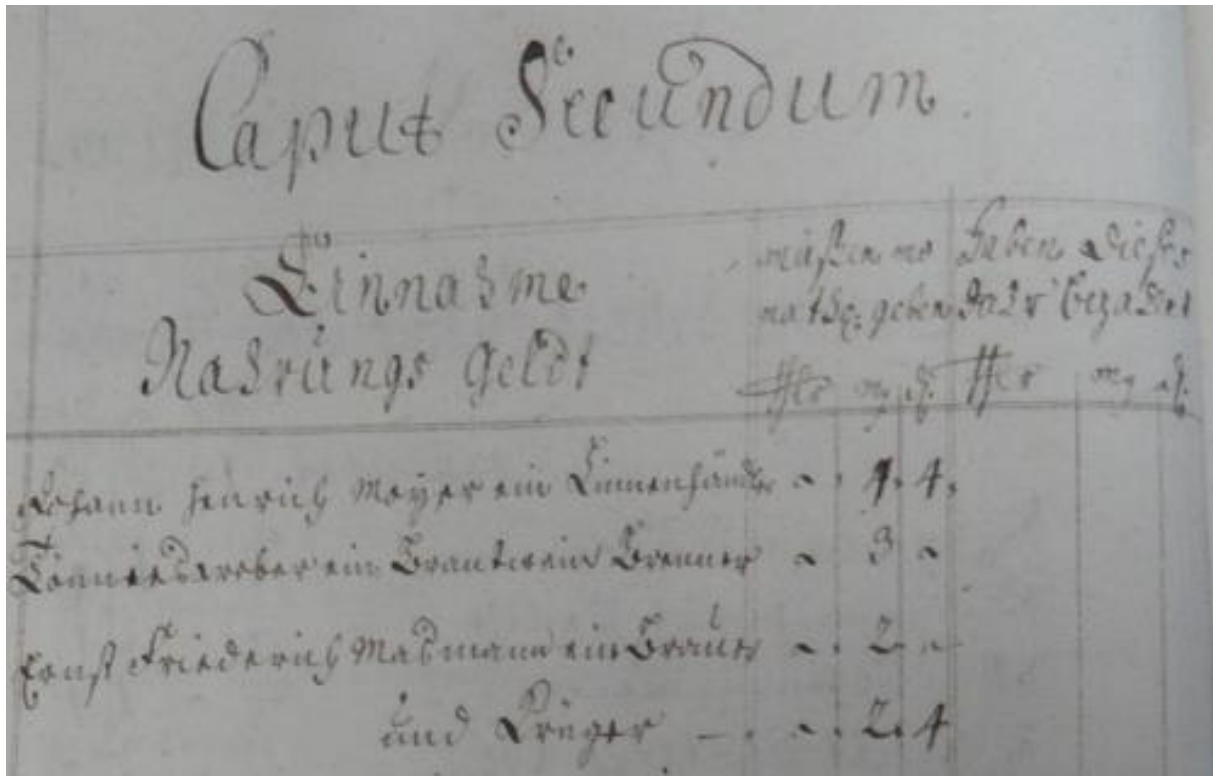 Caput Secundum.
Einnahme
Nahrungs Geldt
müßen mo
nathl: geben
haben dießes
Jahr bezahlet
mg
mg
Johann Henrich Meyer ein Linnenhändler 4. 4.
ein Brantwein Brenner 3
Ernst Friederich Maßmann ein Brauer 2
und Krüger 2. 4